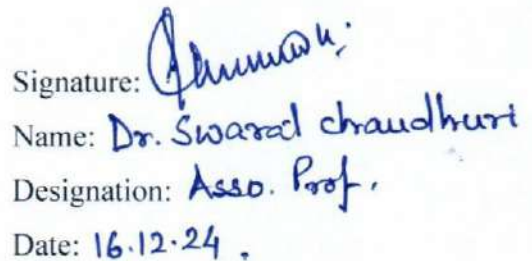 Signature:
Name: Dr. Swarad chaudhuri
Designation: Asso. Prof.
Date: 16.12.24.